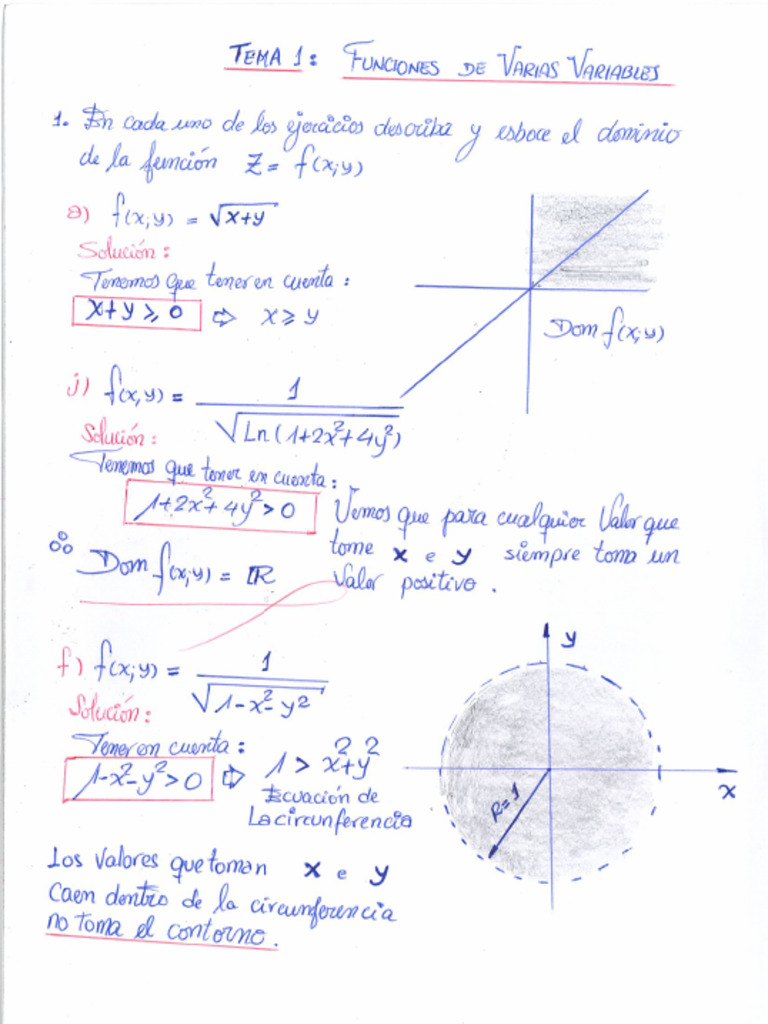 TEMA 1: FUNCIONES DE VARIAS VARIABLES
1. En cada uno de los ejercicios describa y esboce el dominio
de la función Z = f(x;y)
a) f(x;y) = √x+y
Solución:
Tenemos que tener en cuenta:
x+y ≥ 0 ⇨ x ≥ y
Dom f(x;y)
j) f(x,y) = 1 / √Ln(1+2x²+4y²)
Solución:
Tenemos que tener en cuenta:
1+2x²+4y² > 0
Vemos que para cualquier Valor que
tome x e y siempre toma un
Valor positivo.
∴ Dom f(x;y) = ℝ
f) f(x;y) = 1 / √1-x²-y²
Solución:
Tener en cuenta:
1-x²-y² > 0 ⇨ 1 > x²+y²
Ecuación de
La circunferencia
y
x
R=1
Los valores que toman x e y
Caen dentro de la circunferencia
no toma el contorno.